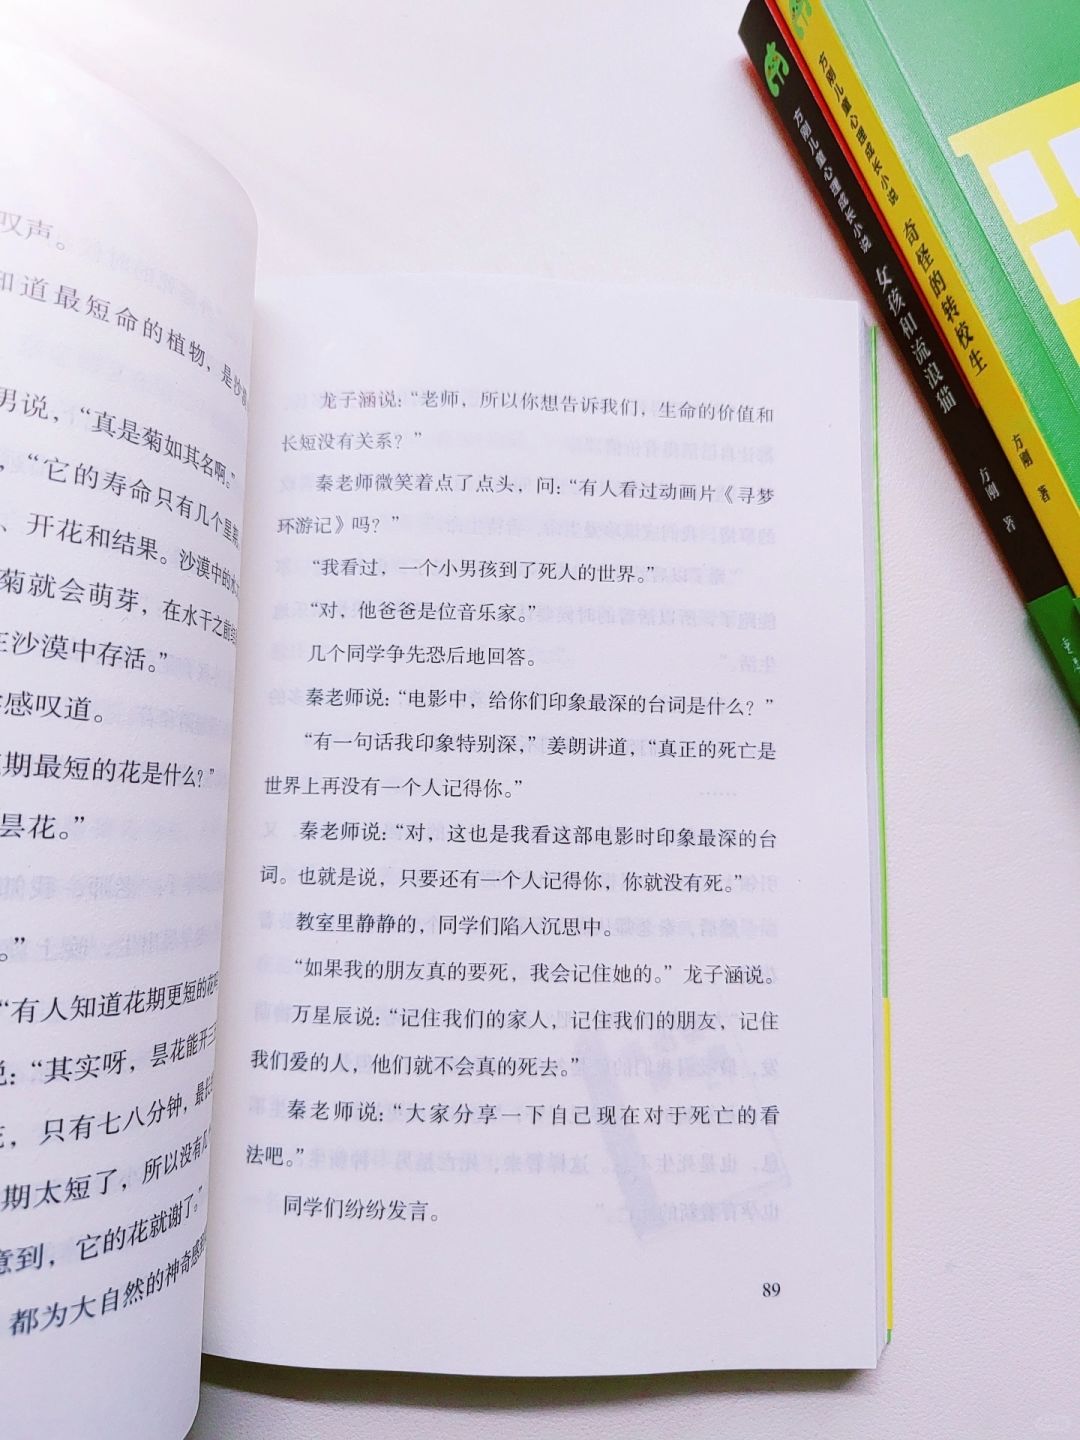 叹声。
知道最短命的植物，是沙
男说，“真是菊如其名啊。”
，“它的寿命只有几个星期
、开花和结果。沙漠中的水
菊就会萌芽，在水干之前
在沙漠中存活。”
感叹道。
期最短的花是什么？”
昙花。”
。”
“有人知道花期更短的花
说：“其实呀，昙花能开三
花，只有七八分钟，最长
期太短了，所以没有几
意到，它的花就谢了。”
都为大自然的神奇感
龙子涵说：“老师，所以你想告诉我们，生命的价值和
长短没有关系？”
秦老师微笑着点了点头，问：“有人看过动画片《寻梦
环游记》吗？”
“我看过，一个小男孩到了死人的世界。”
“对，他爸爸是位音乐家。”
几个同学争先恐后地回答。
秦老师说：“电影中，给你们印象最深的台词是什么？”
“有一句话我印象特别深，”姜朗讲道，“真正的死亡是
世界上再没有一个人记得你。”
秦老师说：“对，这也是我看这部电影时印象最深的台
词。也就是说，只要还有一个人记得你，你就没有死。”
教室里静静的，同学们陷入沉思中。
“如果我的朋友真的要死，我会记住她的。”龙子涵说。
万星辰说：“记住我们的家人，记住我们的朋友，记住
我们爱的人，他们就不会真的死去。”
秦老师说：“大家分享一下自己现在对于死亡的看
法吧。”
同学们纷纷发言。
89
方刚儿童心理成长小说 女孩和流浪猫 方刚 著
方刚儿童心理成长小说 奇怪的转校生 方刚 著